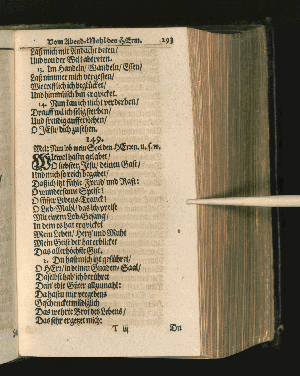 Vom Abend-Mahl des HErrn. 193
Laß mich mit Andacht beten/
Und von der Welt abtreten.
13. Im Handeln/ Wandeln/ Essen/
Laß nimmer mich vergessen/
Wie trefflich ich beglücket/
Und himmlisch bin erqvicket.
14. Nun kan ich nicht verderben/
Drauff wil ich selig sterben/
Und freudig aufferstehen/
O JEsu/ dich zu sehen.
149.
Mel: Nun lob mein Seel den HErren. u. s. w.
Wie wol hastu gelabet/
O liebster JEsu/ deinen Gast/
Und mich so reich begabet/
Daß ich itzt fühle Freud und Rast:
O wundersame Speise!
O süsser Lebens-Tranck!
O Lieb-Mahl/ das ich preise
Mit einem Lob-Gesang/
In dem es hat erqvicket
Mein Leben/ Hertz und Muht
Mein Geist der hat erblicket
Das allerhöchste Gut.
2. Du hast mich itzt geführet/
O HErr/ in deinen Gnaden-Saal/
Daselbst hab' ich berühret
Dein' edle Güter allzumahl:
Da hastu mir vergebens
Geschencket mildiglich
Das wehrte Brot des Lebens/
Das sehr ergetzet mich:
T iij
Du